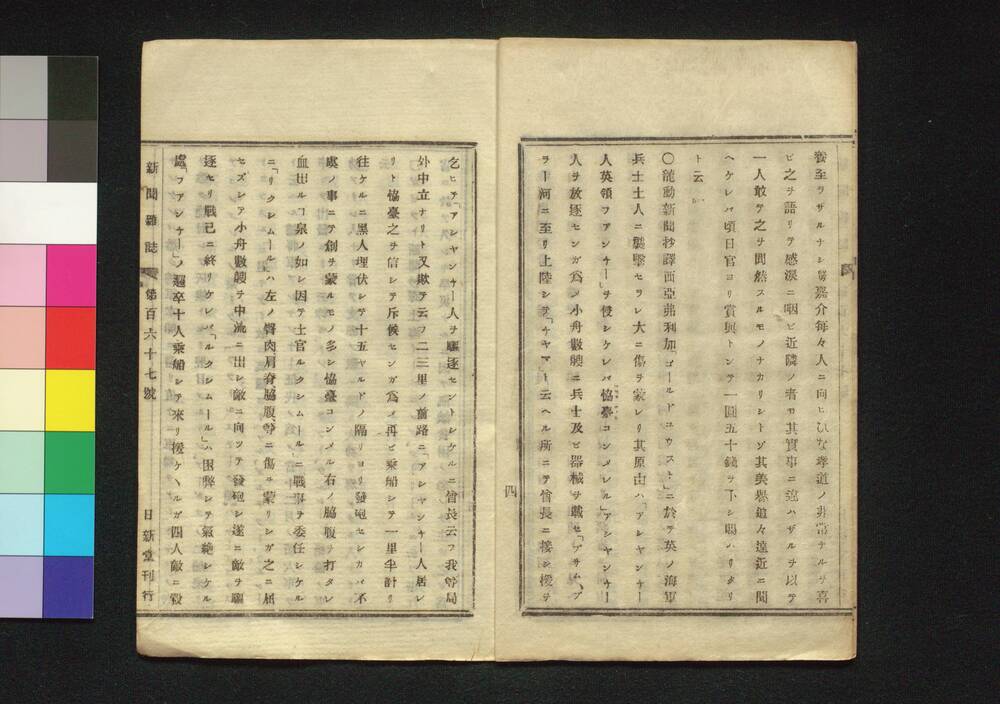 養至ラザルナシ嘉介每々人ニ向ヒひな孝道ノ非常ナルヲ喜
ビ之ヲ語リテ感涙ニ咽ビ近隣ノ者モ其實事ニ違ハザルヲ以テ
一人敢テ之ヲ間然スルモノナカリシトゾ其美譽追々遠近ニ聞
ヘケレバ頃日官ヨリ賞與トシテ一圓五十錢ヲ下シ賜ハリタリ
ト云
〇龍動新聞抄譯西亞弗利加「ゴールドコウスト」ニ於テ英ノ海軍
兵士土人ニ襲擊セラレ大ニ傷ヲ蒙レリ其原由ハ「アシヤンチー
人英領フアンチー」ヲ侵シケレバ恊臺コンメレル」アシヤンチー
人ヲ放逐センガ爲メ小舟數艘ニ兵士及ビ器械ヲ載セ「プサム、プ
ラー河ニ至リ上陸シテ「チヤマ」ト云ヘル所ニテ酋長ニ接シ援ヲ
四
乞ヒテ「アシヤンチー人ヲ驅逐セントシケルニ酋長云フ我等局
外中立ナリト又欺テ云フ二三里ノ前路ニ「アシヤンチー人居レ
リト恊臺之ヲ信シテ斥候センガ爲メ再ビ乘船シテ一里半計リ
往ケルニ黑人埋伏シテ十五ヤルドノ隔リヨリ發砲セシカバ不
慮ノ事ニテ創ヲ蒙ルモノ多シ恊臺コンメル右ノ脇腹ヲ打タレ
血出ルヿ泉ノ如シ因テ士官ルクシムール」ニ戰事ヲ委任シケル
ニ「リクシムールハ左ノ臀肉肩脊脇腹等ニ傷ヲ蒙リシガ之ニ屈
セズシテ小舟數艘ヲ中流ニ出シ敵ニ向ツテ發砲シ遂ニ敵ヲ驅
逐セリ戰已ニ終リケレバ「ルクシムール」ハ困弊シテ氣絕シケル
處「フアンチー」ノ邏卒十人乘船シテ來リ援ケヽルガ四人敵ニ殺
新聞雜誌 第百六十七號 日新堂刊行